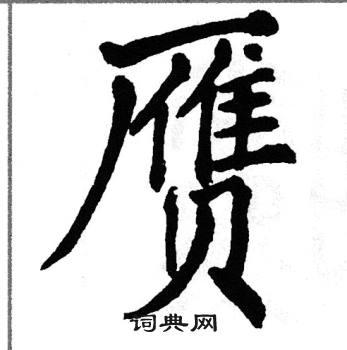 赝
词典网